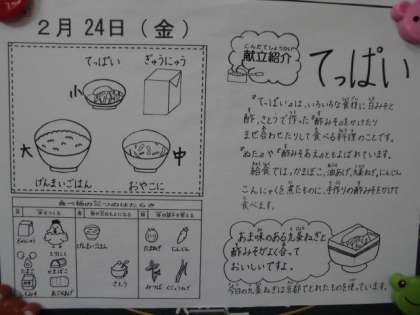 2月24日（金）
てっぱい
ぎゅうにゅう
小
大
中
げんまいごはん
おやこに
食べ物の三つのはたらき
げんまいごはん
たまねぎ
にんじん
さとう
こんだてしょうかい
献立紹介
てっぱい
『てっぱい』は、いろいろな食材に白みそと
酢、さとうで作った『酢みそ』をかけたり
まぜ合わせたりして食べる料理のことです。
『ぬた』や『酢みそあえ』ともよばれています。
給食では、かまぼこ、油あげ、九条ねぎ、にんじん
こんにゃくを煮たものに、手作りの酢みそをかけて
食べます。
あま味のある九条ねぎと
酢みそがよく合って
おいしいですよ。
今日の九条ねぎは京都でとれたものを使っています。